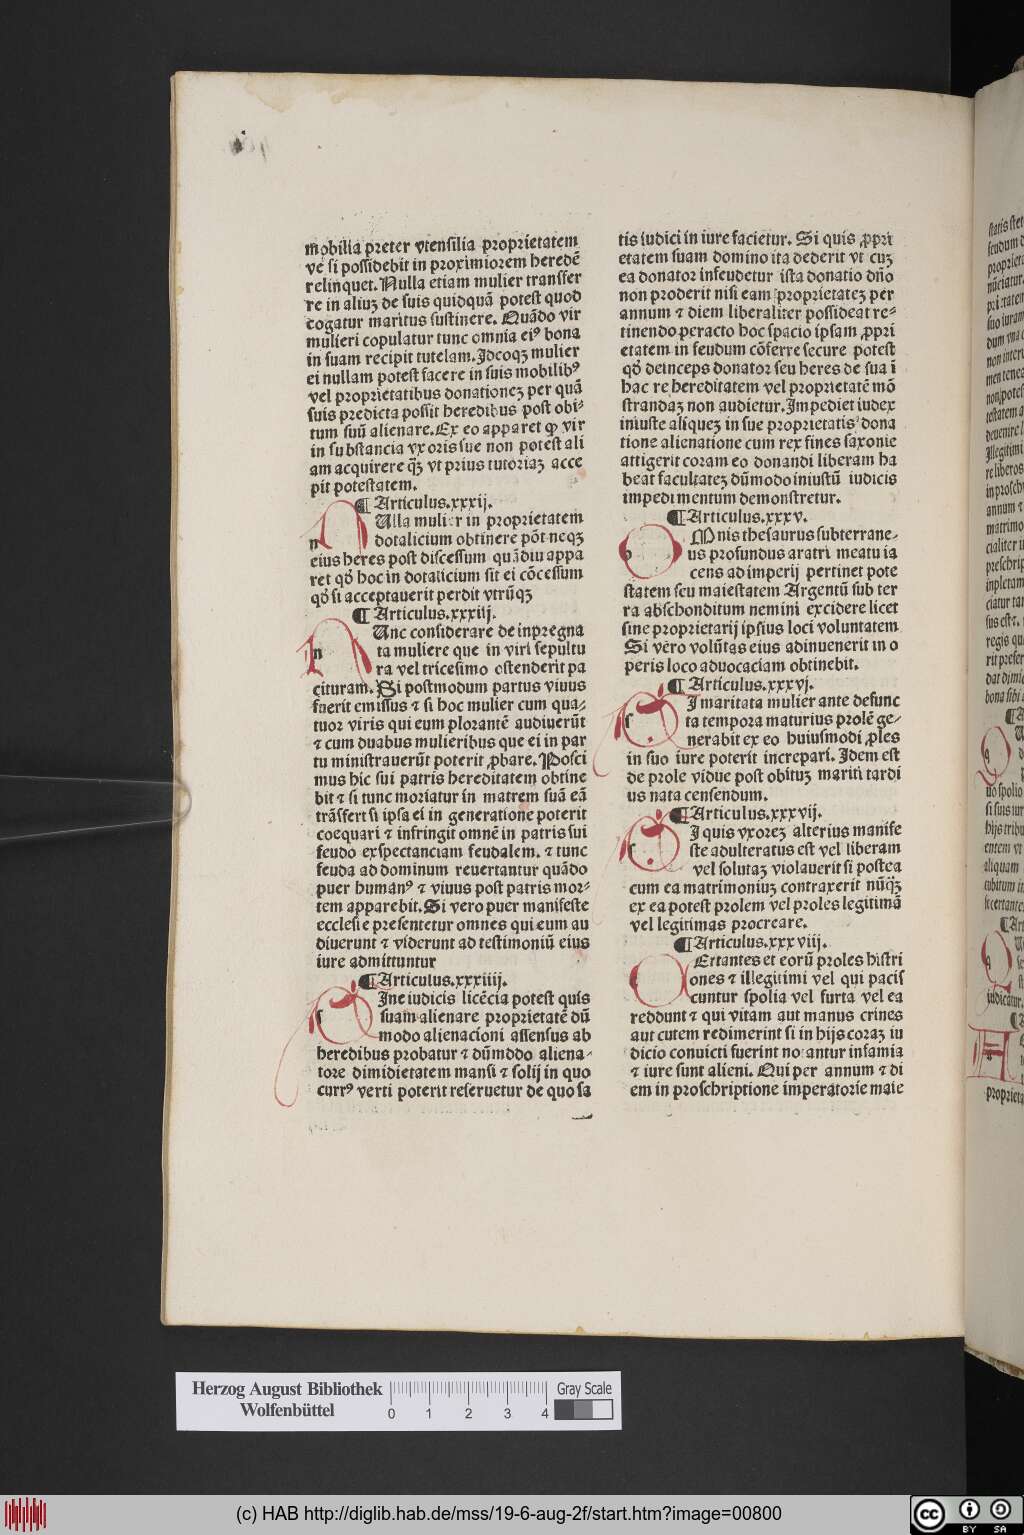 mobilia preter vtensilia proprietatem
ve si possidebit in proximiorem heredē
relinquet. Nulla etiam mulier transfer
re in aliuʒ de suis quidquā potest quod
cogatur maritus sustinere. Quādo vir
mulieri copulatur tunc omnia eiꝰ bona
in suam recipit tutelam. Idcoqʒ mulier
ei nullam potest facere in suis mobilibꝰ
vel proprietatibus donationeʒ per quā
suis predicta possit heredibus post obi⸗
tum suū alienare. Ex eo apparet ꝙ vir
in substancia vxoris sue non potest ali
am acquirere q̄ʒ vt prius tutoriaʒ acce
pit potestatem.
¶ Articulus.xxxij.
Ulla mulier in proprietatem
n dotalicium obtinere pōt neqʒ
eius heres post discessum quādiu appa
ret qō hoc in dotalicium sit ei cōcessum
qō si acceptauerit perdit vtrūqʒ
¶ Articulus.xxxiij.
Unc considerare de inpregna
n ta muliere que in viri sepultu
ra vel tricesimo ostenderit pa
cituram. Si postmodum partus viuus
fuerit emissus ⁊ si hoc mulier cum qua⸗
tuor viris qui eum plorantē audiuerūt
⁊ cum duabus mulieribus que ei in par
tu ministrauerūt poterit ꝓbare. Posci
mus hic sui patris hereditatem obtine
bit ⁊ si tunc moriatur in matrem suā eā
trāsfert si ipsa ei in generatione poterit
coequari ⁊ infringit omnē in patris sui
feudo exspectanciam feudalem. ⁊ tunc
feuda ad dominum reuertantur quādo
puer humanꝰ ⁊ viuus post patris mor⸗
tem apparebit. Si vero puer manifeste
ecclesie presentetur omnes qui eum au
diuerunt ⁊ viderunt ad testimoniū eius
iure admittuntur
¶ Articulus.xxxiiij.
Ine iudicis licēcia potest quis
s suam alienare proprietatē dū
modo alienacioni assensus ab
heredibus probatur ⁊ dūmodo aliena⸗
tore dimidietatem mansi ⁊ solij in quo
currꝰ verti poterit reseruetur de quo sa
tis iudici in iure facietur. Si quis ꝓpri
etatem suam domino ita dederit vt cuʒ
ea donator infeudetur ista donatio dn̄o
non proderit nisi eam proprietateʒ per
annum ⁊ diem liberaliter possideat re⸗
tinendo peracto hoc spacio ipsam ꝓpri
etatem in feudum cōferre secure potest
qō deinceps donator seu heres de sua ī
hac re hereditatem vel proprietatē mō
strandaʒ non audietur. Impediet iudex
iniuste aliqueʒ in sue proprietatis dona
tione alienatione cum rex fines saxonie
attigerit coram eo donandi liberam ha
beat facultateʒ dūmodo iniustū iudicis
impedimentum demonstretur.
¶ Articulus.xxxv.
Mnis thesaurus subterrane⸗
o us profundus aratri meatu ia
cens ad imperij pertinet pote
statem seu maiestatem Argentū sub ter
ra absconditum nemini excidere licet
sine proprietarij ipsius loci voluntatem
Si vero volūtas eius adinuenerit in o
peris loco aduocaciam obtinebit.
¶ Articulus.xxxvj.
I maritata mulier ante defunc
s ta tempora maturius prolē ge⸗
nerabit ex eo huiusmodi ꝓles
in suo iure poterit increpari. Idem est
de prole vidue post obituʒ mariti tardi
us nata censendum.
¶ Articulus.xxxvij.
I quis vxoreʒ alterius manife
s ste adulteratus est vel liberam
vel solutaʒ violauerit si postea
cum ea matrimoniuʒ contraxerit nūq̄ʒ
ex ea potest prolem vel proles legitimā
vel legitimas procreare.
¶ Articulus.xxxviij.
Ertantes et eorū proles histri
c ones ⁊ illegitimi vel qui pacis
cuntur spolia vel furta vel ea
reddunt ⁊ qui vitam aut manus crines
aut cutem redimerint si in hijs coraʒ iu
dicio conuicti fuerint notantur infamia
⁊ iure sunt alieni. Qui per annum ⁊ di
em in proschriptione imperatorie maie
Herzog August Bibliothek
Wolfenbüttel
0 1 2 3 4
Gray Scale
(c) HAB http://diglib.hab.de/mss/19-6-aug-2f/start.htm?image=00800
cc BY SA